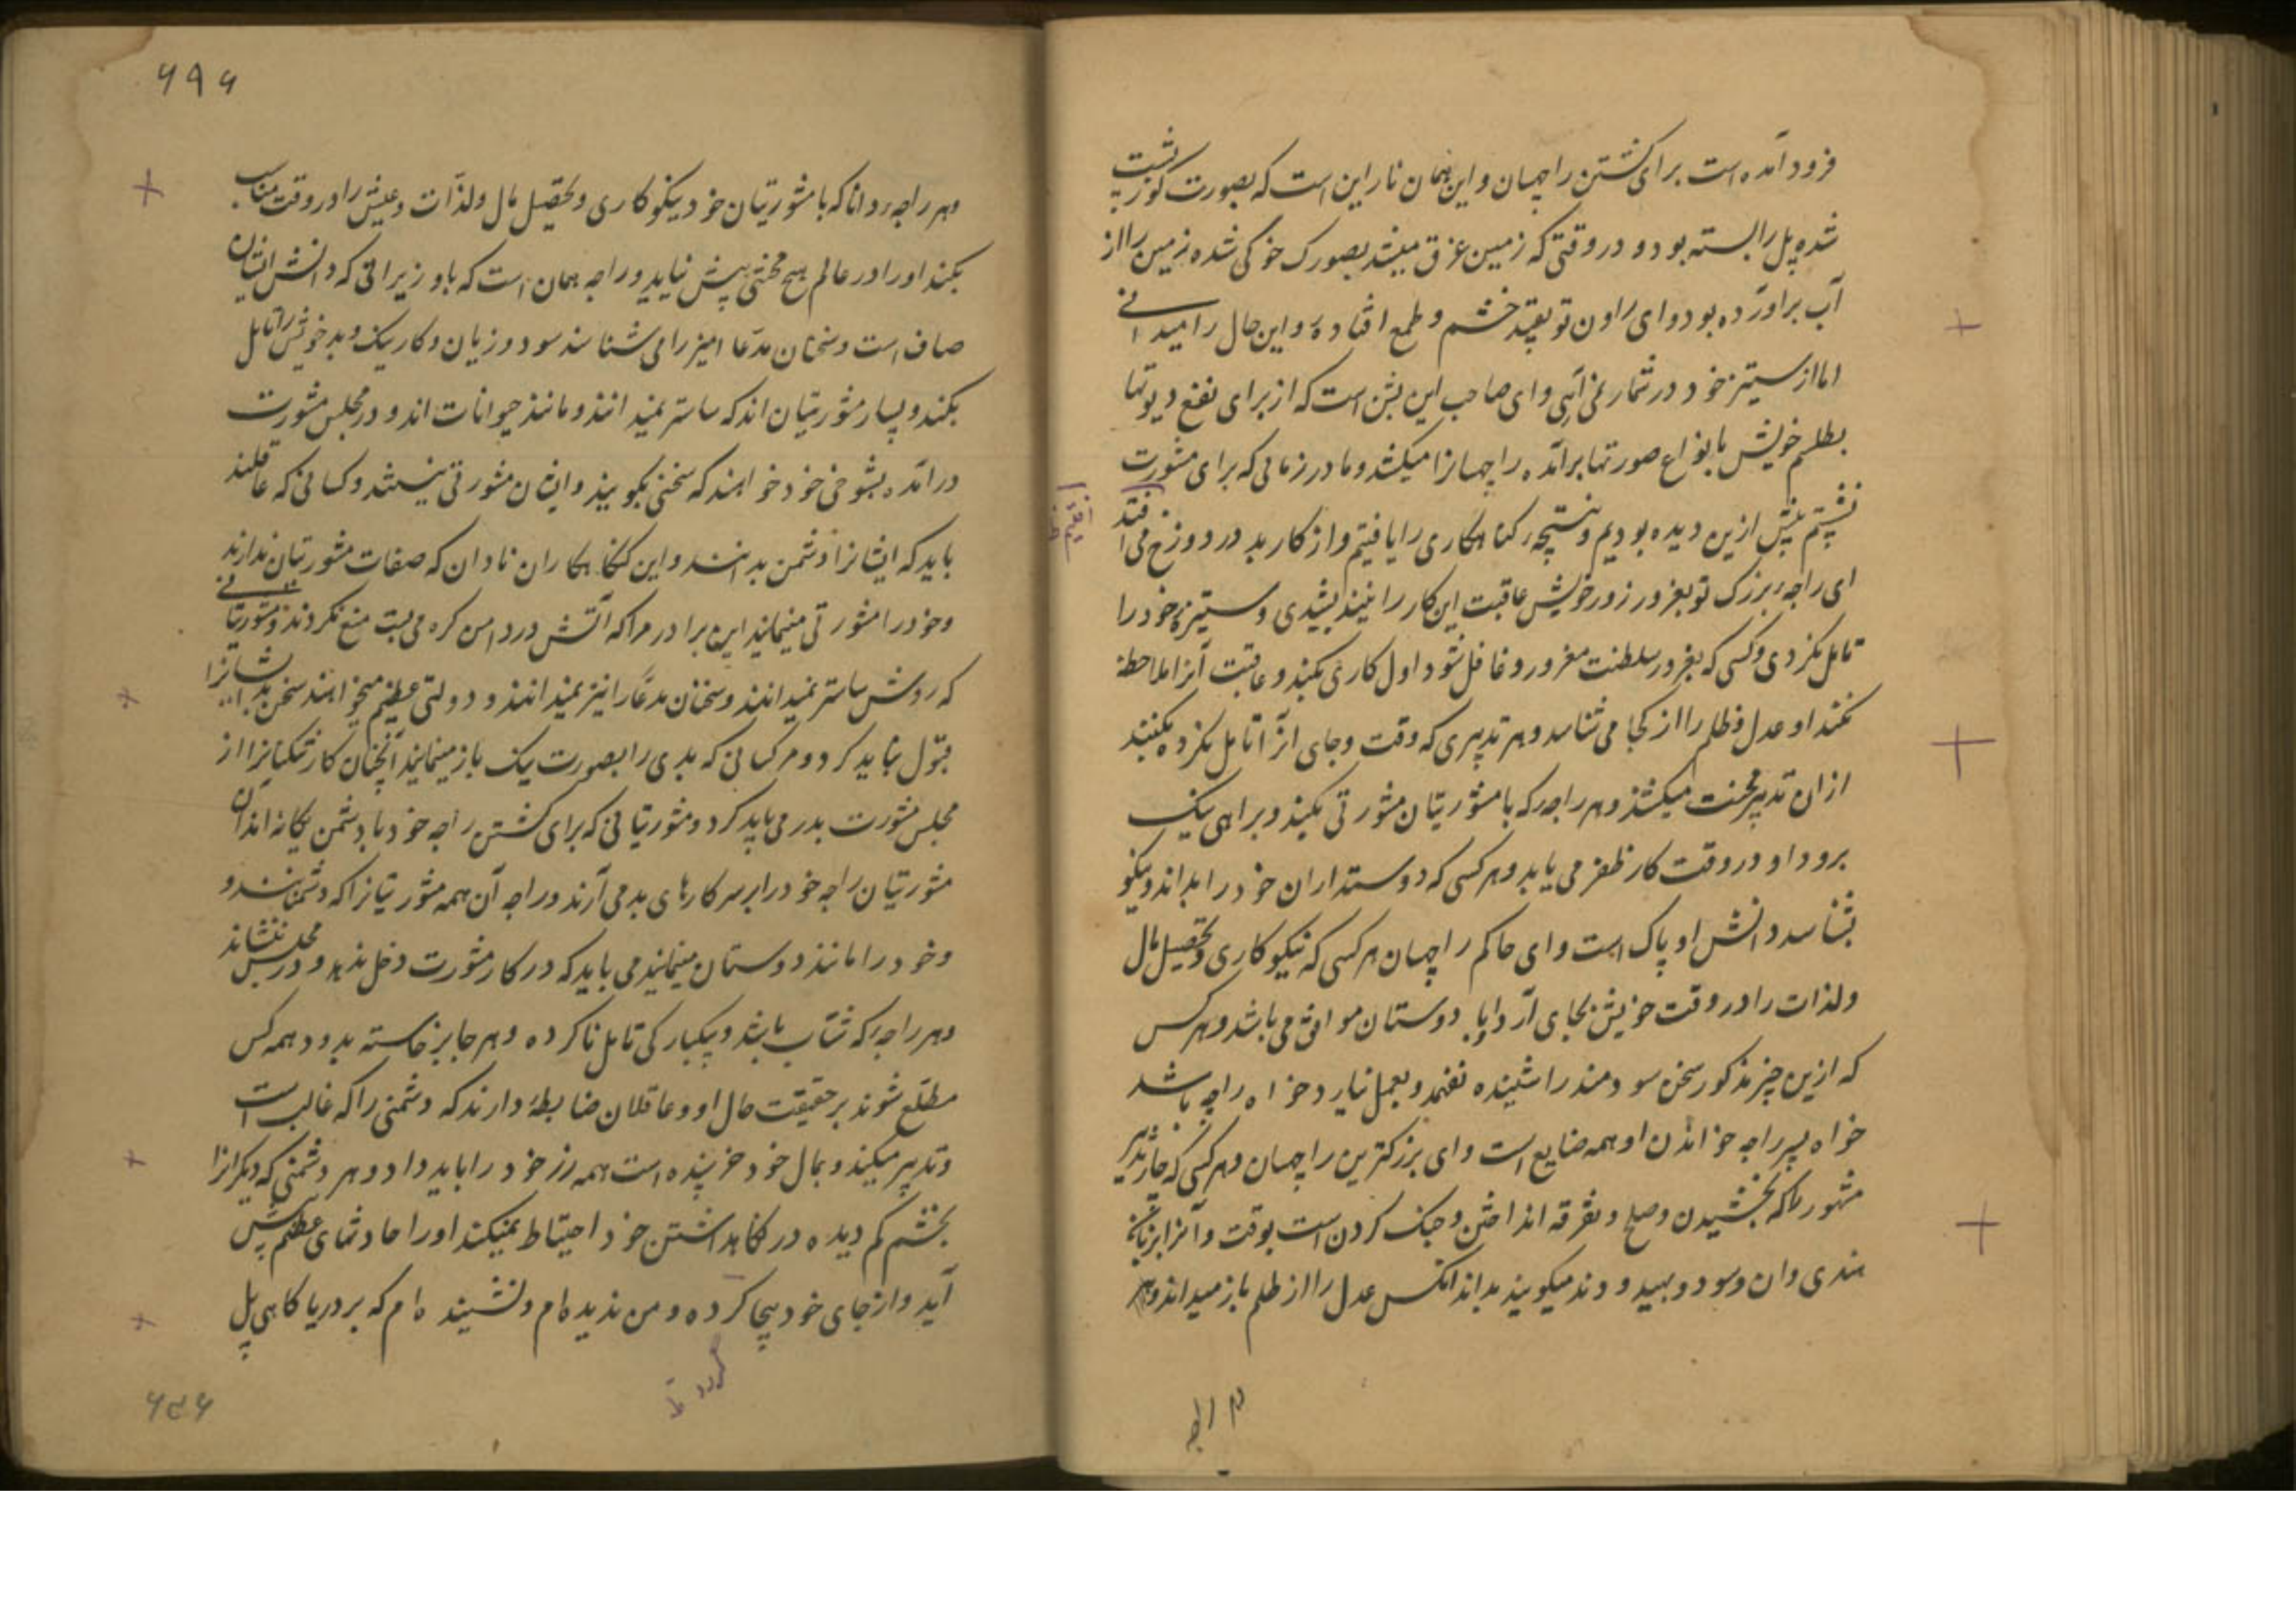 فرود آمده است برای کشتن راجهسان و این همان ناراین است که بصورت کورم پشت
شده پل را بسته بود و در وقتی که زمین غرق میشد بصورت خوکی شده زمین را از
آب برآورده بود و ای راون تو بقید خشم و طمع افتادهٔ و این حال را میدانی
اما از ستیز خود در شمار نمی آری و ای صاحب این بشن است که از برای نفع دیوتها
بطلسم خویش بانواع صورتها برآمده راجهسانرا میکشد و ما در زمانی که برای مشورت
نشستیم پیش ازین دیده بودیم و نتیجهٔ گناهکاری را یافتیم و از کار بد در دوزخ می افتد
ای راجهٔ بزرک تو بغرور زور خویش عاقبت این کار را نیندیشیدی و ستیزهٔ خود را
تامل نکردی و کسی که بغرور سلطنت مغرور و غافل شود اول کاری بکند و عاقبت آنرا ملاحظه
نکند او عدل و ظلم را از کجا می شناسد و هر تدبیری که وقت و جای آنرا تامل نکرده بکنند
ازان تدبیر محنت میکشند و هر راجه که با مشورتیان مشورتی بکند و براهی نیک
برود او در وقت کار ظفر می یابد و هر کسی که دوستداران خود را بداند و نیکو
بشناسد دانش او پاک است و ای حاکم راجهسان هر کسی که نیکوکاری و تحصیل مال
و لذات را در وقت خویش بجای آرد او با دوستان موافق می باشد و هر کس
که ازین چیز مذکور سخن سودمند را شنیده نفهمد و بعمل نیارد خواه راجه باشد
خواه پسر راجه خواندن او همه ضایع است و ای بزرکترین راجهسان و هر کسی که چار تدبیر
مشهور را که بخشیدن و صلح و تفرقه انداختن و جنک کردن است بوقت و آنرا بزبان
هندی دان و سود و بهید و دند میکویند بداند آنکس عدل را از ظلم باز میداند و هر
م راجه
۶۹۶
و هر راجهٔ دانا که با مشورتیان خود نیکوکاری و تحصیل مال و لذات و عیش را در وقت مناسب
بکند او را در عالم هیچ محنتی پیش نیاید و راجه همان است که با وزیرانی که دانش ایشان
صاف است و سخنان مدعا آمیز را می شناسند سود و زیان و کار نیک و بد خویش را تامل
بکند و بسیار مشورتیان اند که ساستر نمیدانند و مانند حیوانات اند و در مجلس مشورت
درآمده بشوخی خود خواهند که سخنی بکویند و ایشان مشورتی نیستند و کسانی که عاقلند
باید که ایشانرا دشمن بدانند و این کناهکاران نادان که صفات مشورتیان ندارند
و خود را مشورتی مینمایند این برادر مرا که آتش در دامن کره می بست منع نکردند و مشورتیانی
که روش ساستر نمیدانند و سخنان مدعا را نیز نمیدانند و دولتی عظیم میخواهند سخن بد ایشانرا
قبول نباید کرد و مر کسانی که بدی را بصورت نیک باز مینمایند آنچنان کار شکنانرا از
مجلس مشورت بدر می باید کرد و مشورتیانی که برای کشتن راجه خود با دشمن یکانه اند آن
مشورتیان راجه خود را بر سر کارهای بد می آرند و راجه آن همه مشورتیانرا که دشمنانند و
و خود را مانند دوستان مینمایند می باید که در کار مشورت دخل ندهد و در مجلس ننشاند
و هر راجهٔ که شتاب باشد و یکبارکی تامل ناکرده و هر جا برخاسته بدود همه کس
مطلع شوند بر حقیقت حال او و عاقلان ضابطهٔ دارند که دشمنی را که غالب است
و تدبیر میکند و بمال خود خرسنده است همه رز خود را باید داد و هر دشمنی که دیکرانرا
بخشم کم دیده در نکاهداشتن خود احتیاط نمیکند او را حادثهای عظیم پیش
آید و از جای خود بیجا کرده و من ندیده ام و نشنیده ام که بر دریا کاهی پل
گردد
۶۵۶